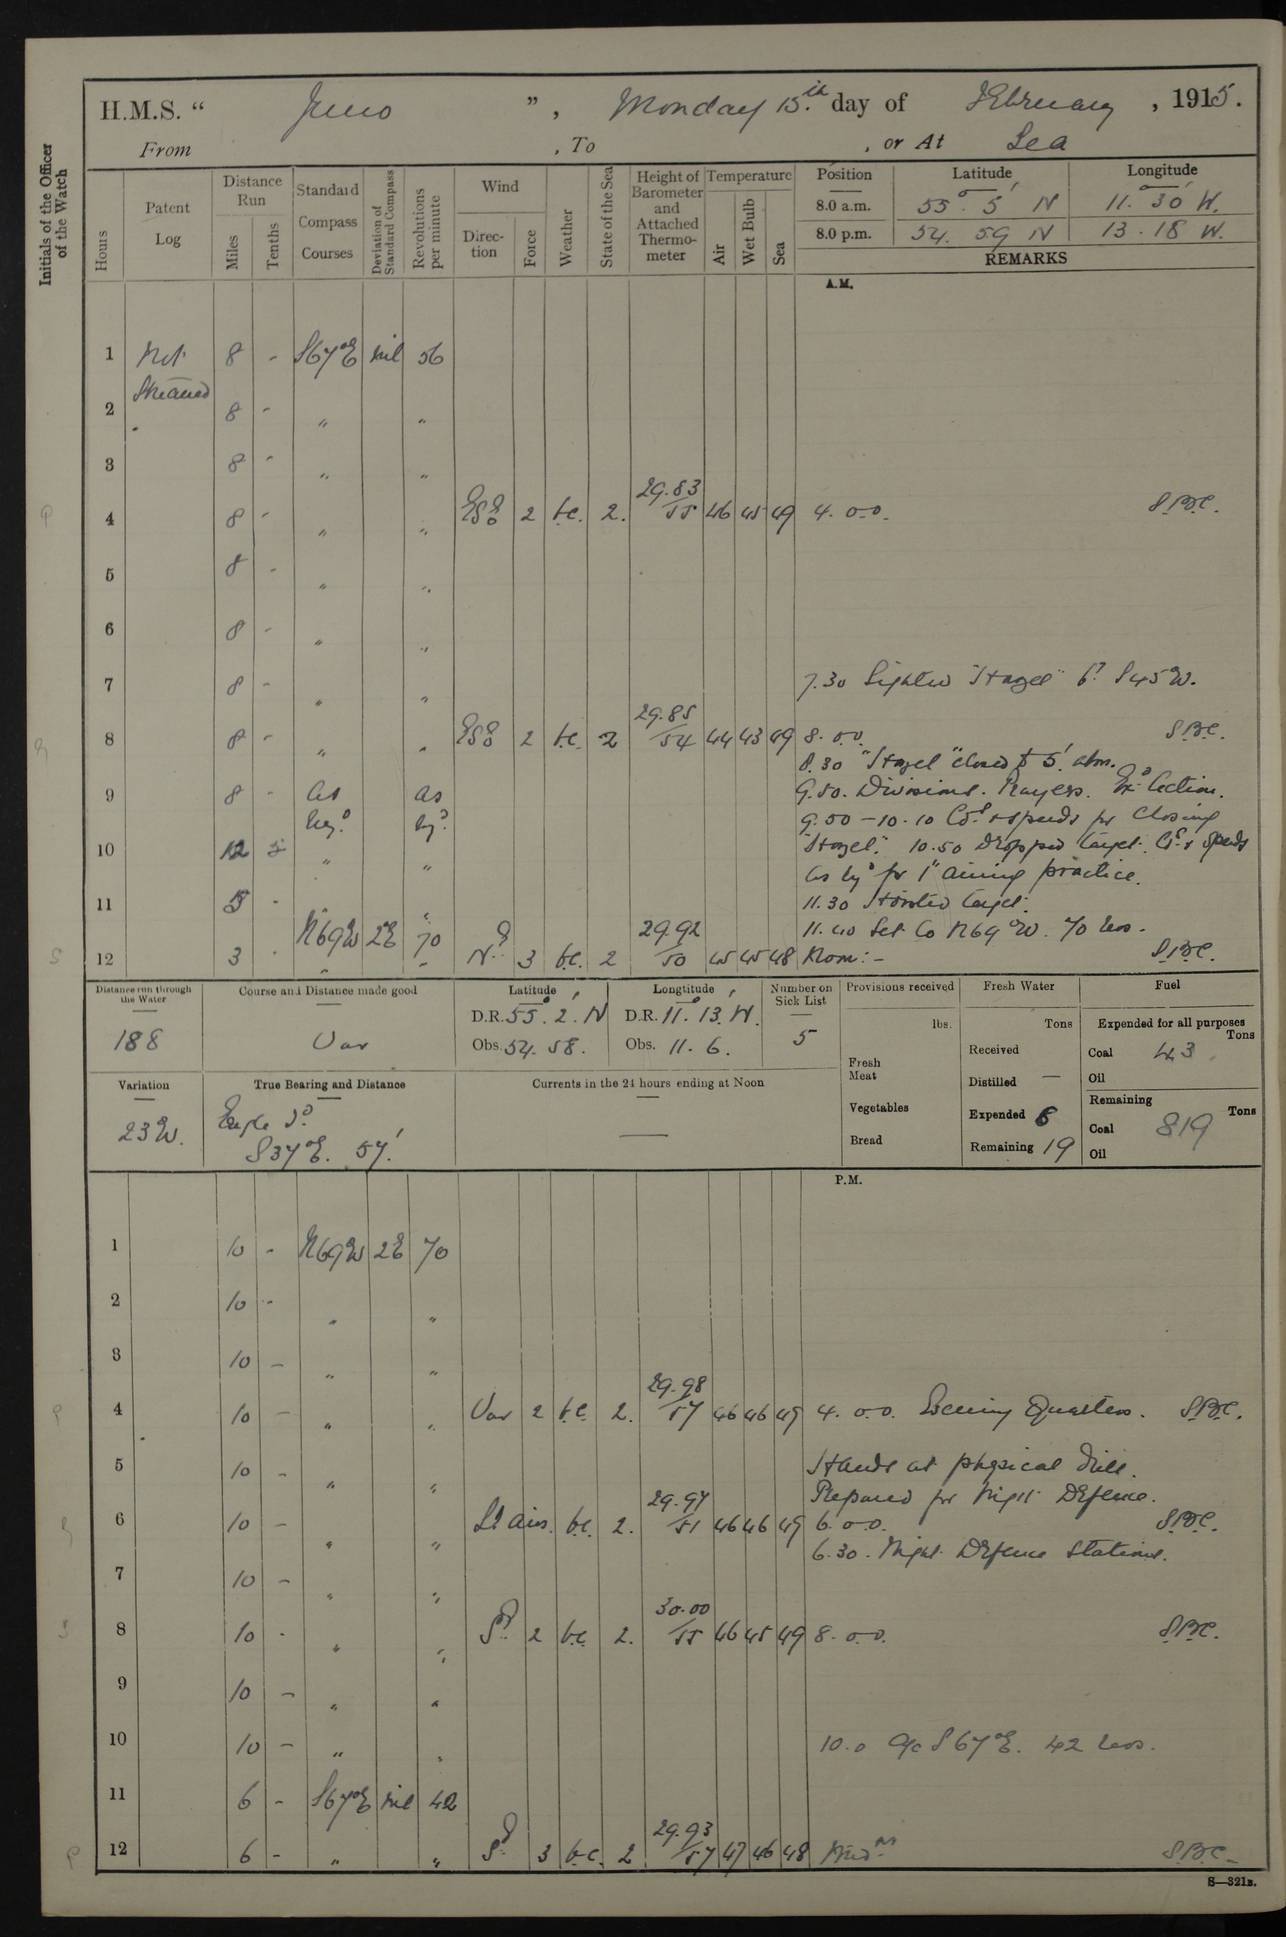 H.M.S. " Juno ", Monday 15th day of February, 1915.
From , To , or At Sea
Initials of the Officer of the Watch
Hours
Patent Log
Distance Run
Miles
Tenths
Standard Compass Courses
Deviation of Standard Compass
Revolutions per minute
Wind
Direction
Force
Weather
State of the Sea
Height of Barometer and Attached Thermometer
Temperature
Air
Wet Bulb
Sea
Position Latitude Longitude
8.0 a.m. 55° 5' N 11° 30' W.
8.0 p.m. 54. 59 N 13. 18 W.
REMARKS
A.M.
1 Not 8 - S67°E nil 56
Streamed
2 8 - " "
3 8 - " "
4 8 - " " ESE 2 b.c. 2. 29.83/55 46 45 49 4. o.o. S.B.C.
5 8 - " "
6 8 - " "
7 8 - " " 7.30 Sighted "Hazel" bg. S45W.
8 8 - " " ESE 2 b.c. 2 29.85/54 44 43 49 8. o.o. S.B.C.
8.30 "Hazel" closed to 5' abm.
9 8 - As req.d As req.d 9.50. Divisions. Prayers. Ex. Action.
9.50 - 10.10 Co.s & speeds for closing
10 12 " " "Hazel". 10.50 Dropped target. Co.s & speeds
as req.d for 1" aiming practice.
11 5 - " " 11.30 Hoisted target.
N69W 2E 70 11.40 Set Co N69°W. 70 revs.
12 3 - " - N.E. 3 b.c. 2 29.92/50 45 45 48 Noon:- S.B.C.
Distance run through the Water
188
Course and Distance made good
Var
Latitude
D.R. 55° 2' N
Obs. 54. 58.
Longtitude
D.R. 11° 13' W.
Obs. 11. 6.
Number on Sick List
5
Provisions received
lbs.
Fresh Meat
Vegetables
Bread
Fresh Water
Tons
Received
Distilled —
Expended 8
Remaining 19
Fuel
Expended for all purposes
Tons
Coal 43
Oil
Remaining
Tons
Coal 819
Oil
Variation
23W.
True Bearing and Distance
Eagle I.d
S37°E. 57'
Currents in the 24 hours ending at Noon
—
P.M.
1 10 - N69W 2E 70
2 10 - " "
3 10 - " "
4 10 - " " Var 2 b.c. 2. 29.98/57 46 46 49 4. o.o. Evening Quarters. S.B.C.
5 10 - " " Hands at physical drill.
Prepared for Night Defence.
6 10 - " " Lt airs. b.c. 2. 29.97/51 46 46 49 6. o.o. S.B.C.
6.30. Night Defence Stations.
7 10 - " "
8 10 - " " 2 b.c. 2. 30.00/55 46 45 49 8. o.o. S.B.C.
9 10 - " "
10 10 - " " 10.0 a/c S67°E. 42 revs.
11 6 - S67°E nil 42
12 6 - " " 3 b.c. 2 29.93/57 47 46 48 Mid.n S.B.C.
S—321B.